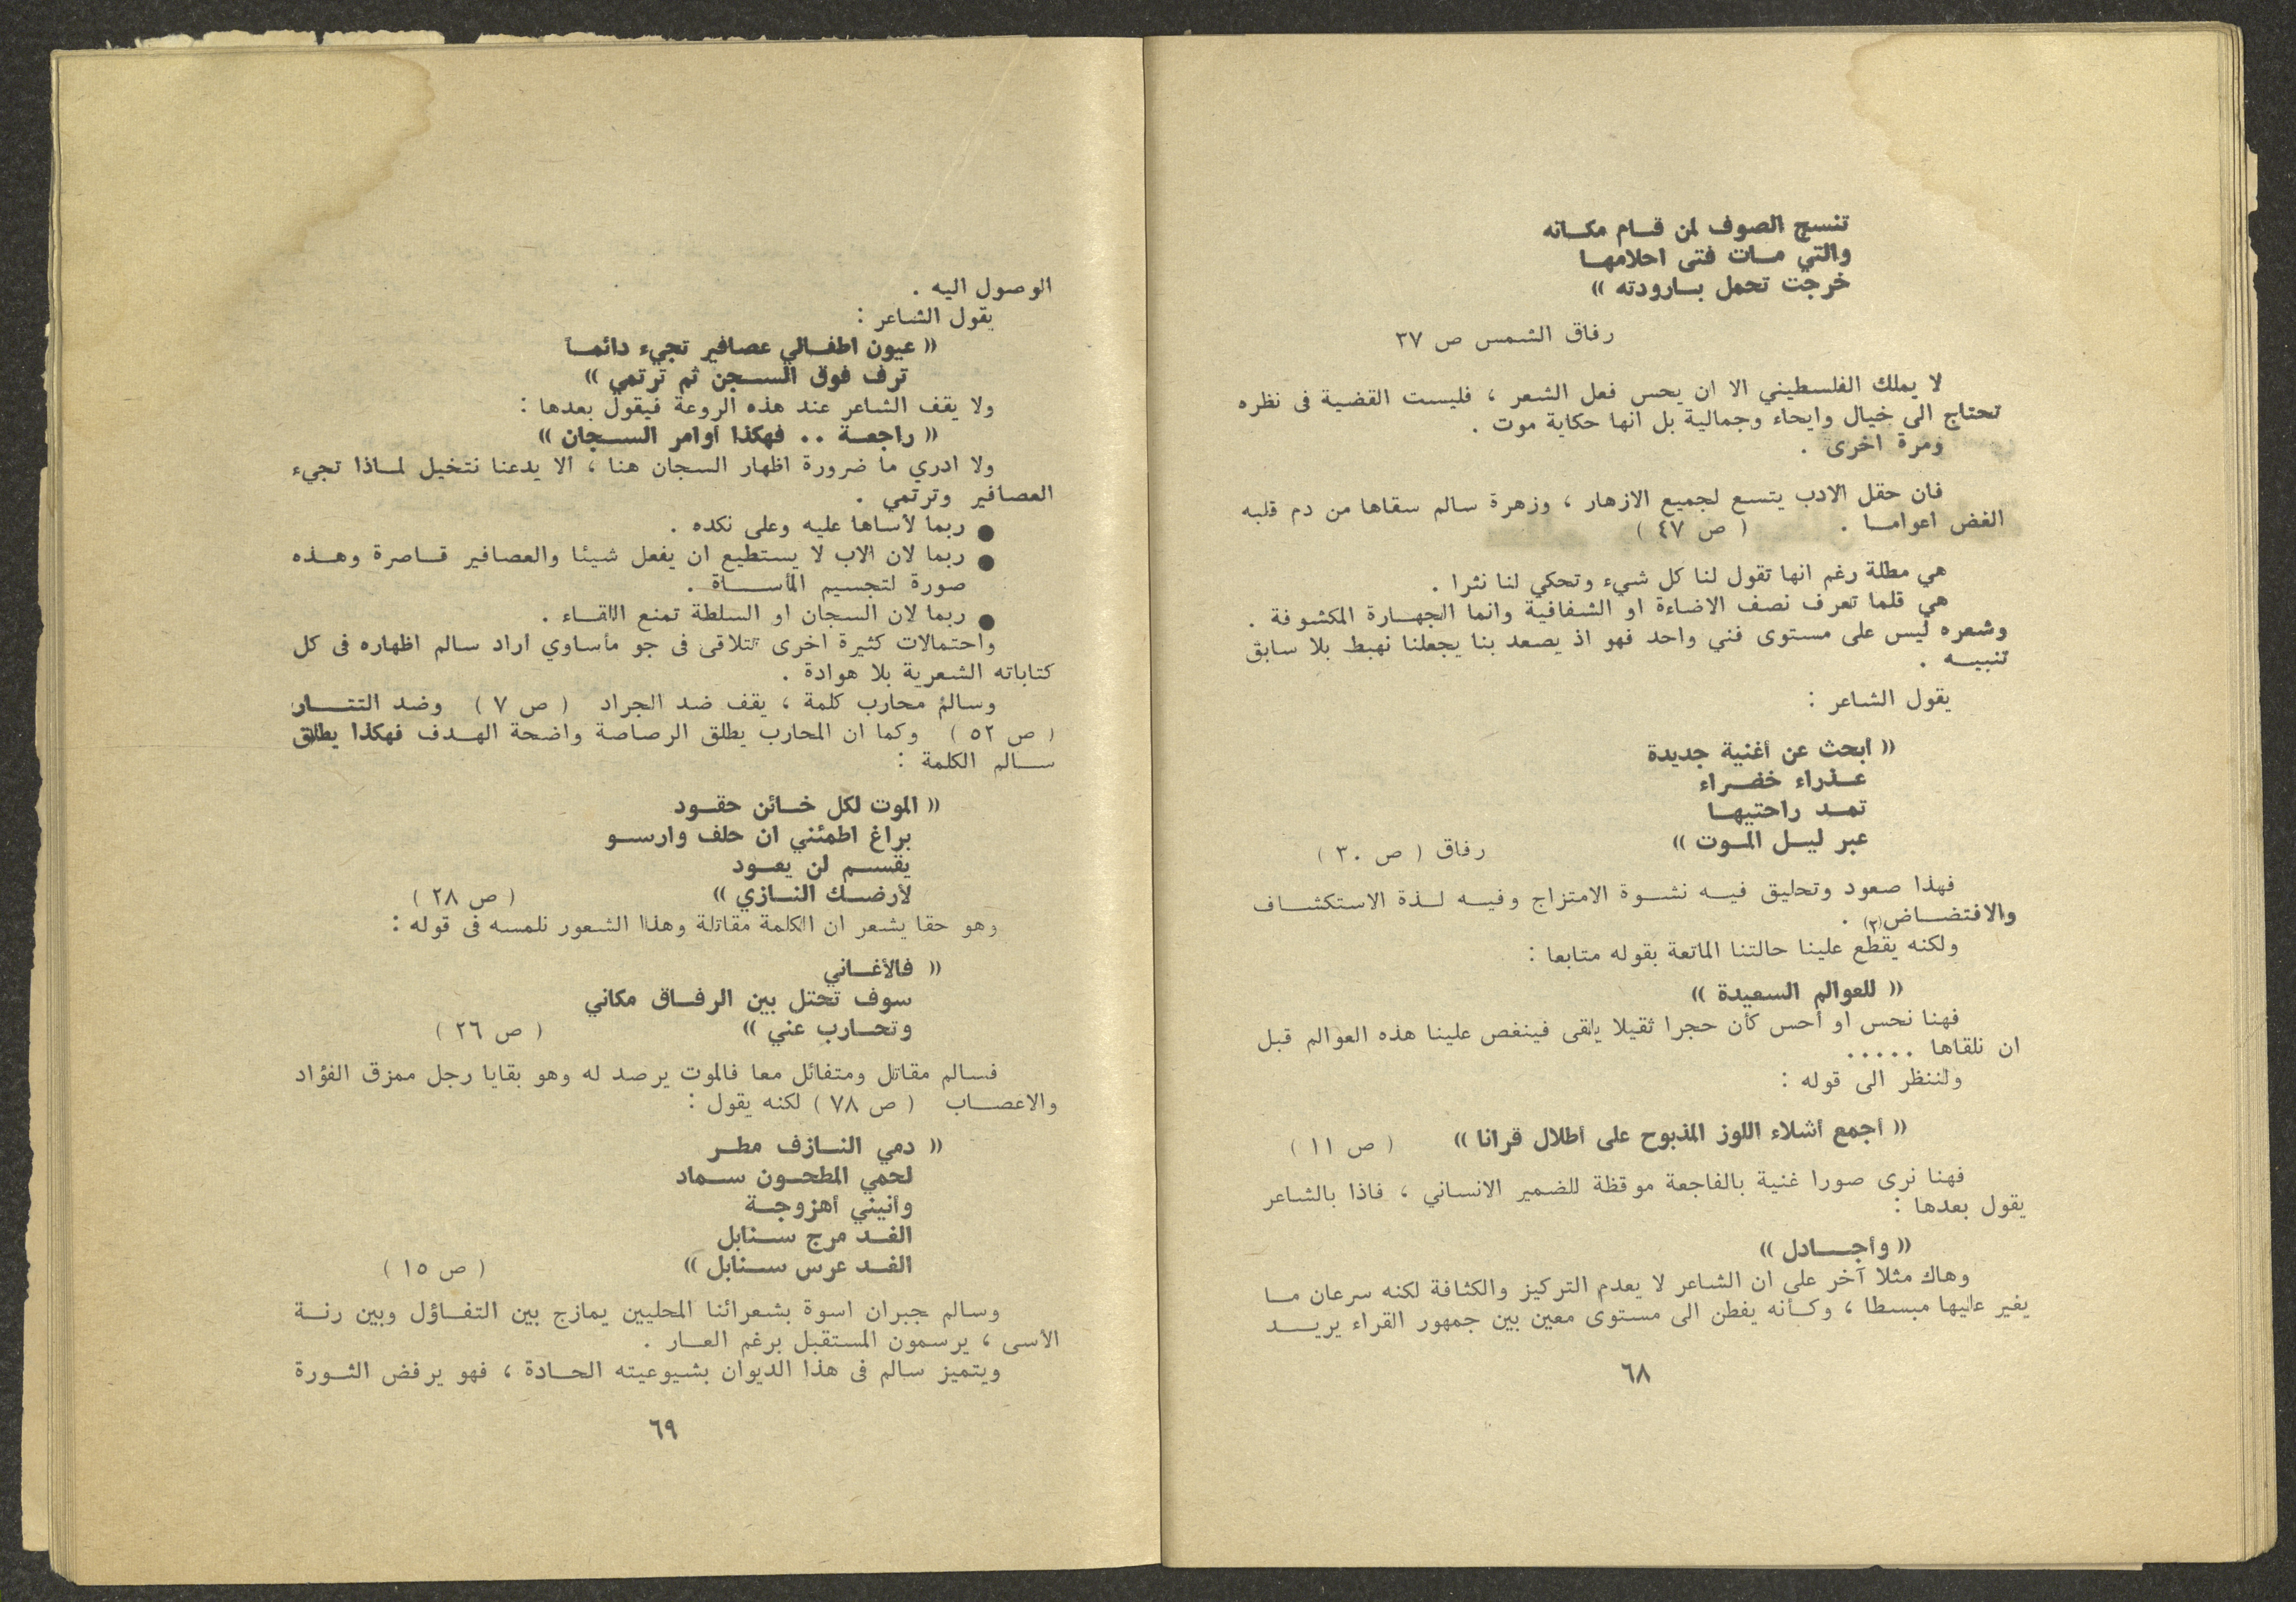 تنسج الصوف لمن قام مكانه
والتي مات فتى احلامها
خرجت تحمل بارودته »
رفاق الشمس ص ٣٧
لا يملك الفلسطيني الا ان يحس فعل الشعر ، فليست القضية فى نظره
تحتاج الى خيال وايحاء وجمالية بل انها حكاية موت .
ومرة اخرى .
فان حقل الادب يتسع لجميع الازهار ، وزهرة سالم سقاها من دم قلبه
الغض اعواما . ( ص ٤٧ )
هي مطلة رغم انها تقول لنا كل شيء وتحكي لنا نثرا .
هي قلما تعرف نصف الاضاءة او الشفافية وانما الجهارة المكشوفة .
وشعره ليس على مستوى فني واحد فهو اذ يصعد بنا يجعلنا نهبط بلا سابق
تنبيه .
يقول الشاعر :
« أبحث عن أغنية جديدة
عذراء خضراء
تمد راحتيها
عبر ليل الموت » رفاق ( ص ٣٠ )
فهذا صعود وتحليق فيه نشوة الامتزاج وفيه لذة الاستكشاف
والافتضاض(٢) .
ولكنه يقطع علينا حالتنا الماتعة بقوله متابعا :
« للعوالم السعيدة »
فهنا نحس او أحس كأن حجرا ثقيلا يلقى فينغص علينا هذه العوالم قبل
ان نلقاها .....
ولننظر الى قوله :
« أجمع أشلاء اللوز المذبوح على أطلال قرانا » ( ص ١١ )
فهنا نرى صورا غنية بالفاجعة موقظة للضمير الانساني ، فاذا بالشاعر
يقول بعدها :
« وأجادل »
وهاك مثلا آخر على ان الشاعر لا يعدم التركيز والكثافة لكنه سرعان ما
يغير عليها مبسطا ، وكأنه يفطن الى مستوى معين بين جمهور القراء يريد
٦٨
الوصول اليه .
يقول الشاعر :
« عيون اطفالي عصافير تجيء دائماً
ترف فوق السجن ثم ترتمي »
ولا يقف الشاعر عند هذه الروعة فيقول بعدها :
« راجعة .. فهكذا أوامر السجان »
ولا ادري ما ضرورة اظهار السجان هنا ، الا يدعنا نتخيل لماذا تجيء
العصافير وترتمي .
● ربما لأساها عليه وعلى نكده .
● ربما لان الاب لا يستطيع ان يفعل شيئا والعصافير قاصرة وهذه
صورة لتجسيم المأساة .
● ربما لان السجان او السلطة تمنع اللقاء .
واحتمالات كثيرة اخرى تتلاقى فى جو مأساوي اراد سالم اظهاره فى كل
كتاباته الشعرية بلا هوادة .
وسالم محارب كلمة ، يقف ضد الجراد ( ص ٧ ) وضد التتار
( ص ٥٢ ) وكما ان المحارب يطلق الرصاصة واضحة الهدف فهكذا يطلق
سالم الكلمة :
« الموت لكل خائن حقود
براغ اطمئني ان حلف وارسو
يقسم لن يعود
لأرضك النازي » ( ص ٢٨ )
وهو حقا يشعر ان الكلمة مقاتلة وهذا الشعور نلمسه فى قوله :
« فالأغاني
سوف تحتل بين الرفاق مكاني
وتحارب عني » ( ص ٢٦ )
فسالم مقاتل ومتفائل معا فالموت يرصد له وهو بقايا رجل ممزق الفؤاد
والاعصاب ( ص ٧٨ ) لكنه يقول :
« دمي النازف مطر
لحمي المطحون سماد
وأنيني أهزوجة
الغد مرج سنابل
الغد عرس سنابل » ( ص ١٥ )
وسالم جبران اسوة بشعرائنا المحليين يمازج بين التفاؤل وبين رنة
الأسى ، يرسمون المستقبل برغم العار .
ويتميز سالم فى هذا الديوان بشيوعيته الحادة ، فهو يرفض الثورة
٦٩